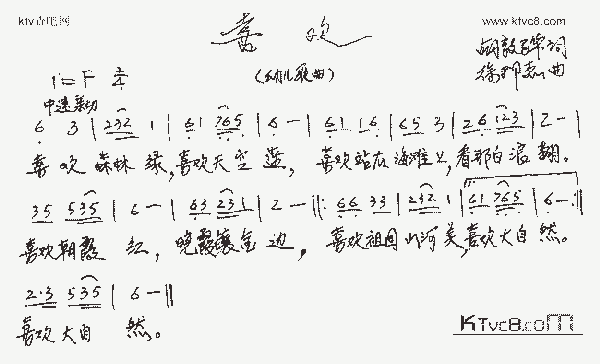 ktv古吧网
www.ktvc8.com
喜欢
(幼儿歌曲)
词
曲
1=F 2/4
中速 亲切
6 3 | 232 1 | 61 765 | 6 - | 61 16 | 65 3 | 26 123 | 2 - |
喜欢森林绿,喜欢天空蓝,喜欢站在海滩上,看那白浪翻。
35 535 | 6 - | 63 231 | 2 - ‖: 66 33 | 232 1 | 61 765 | 6 - :‖
喜欢朝霞红,晚霞镶金边,喜欢祖国山河美,喜欢大自然。
2·3 535 | 6 - ‖
喜欢大自然。
KTvc8.com